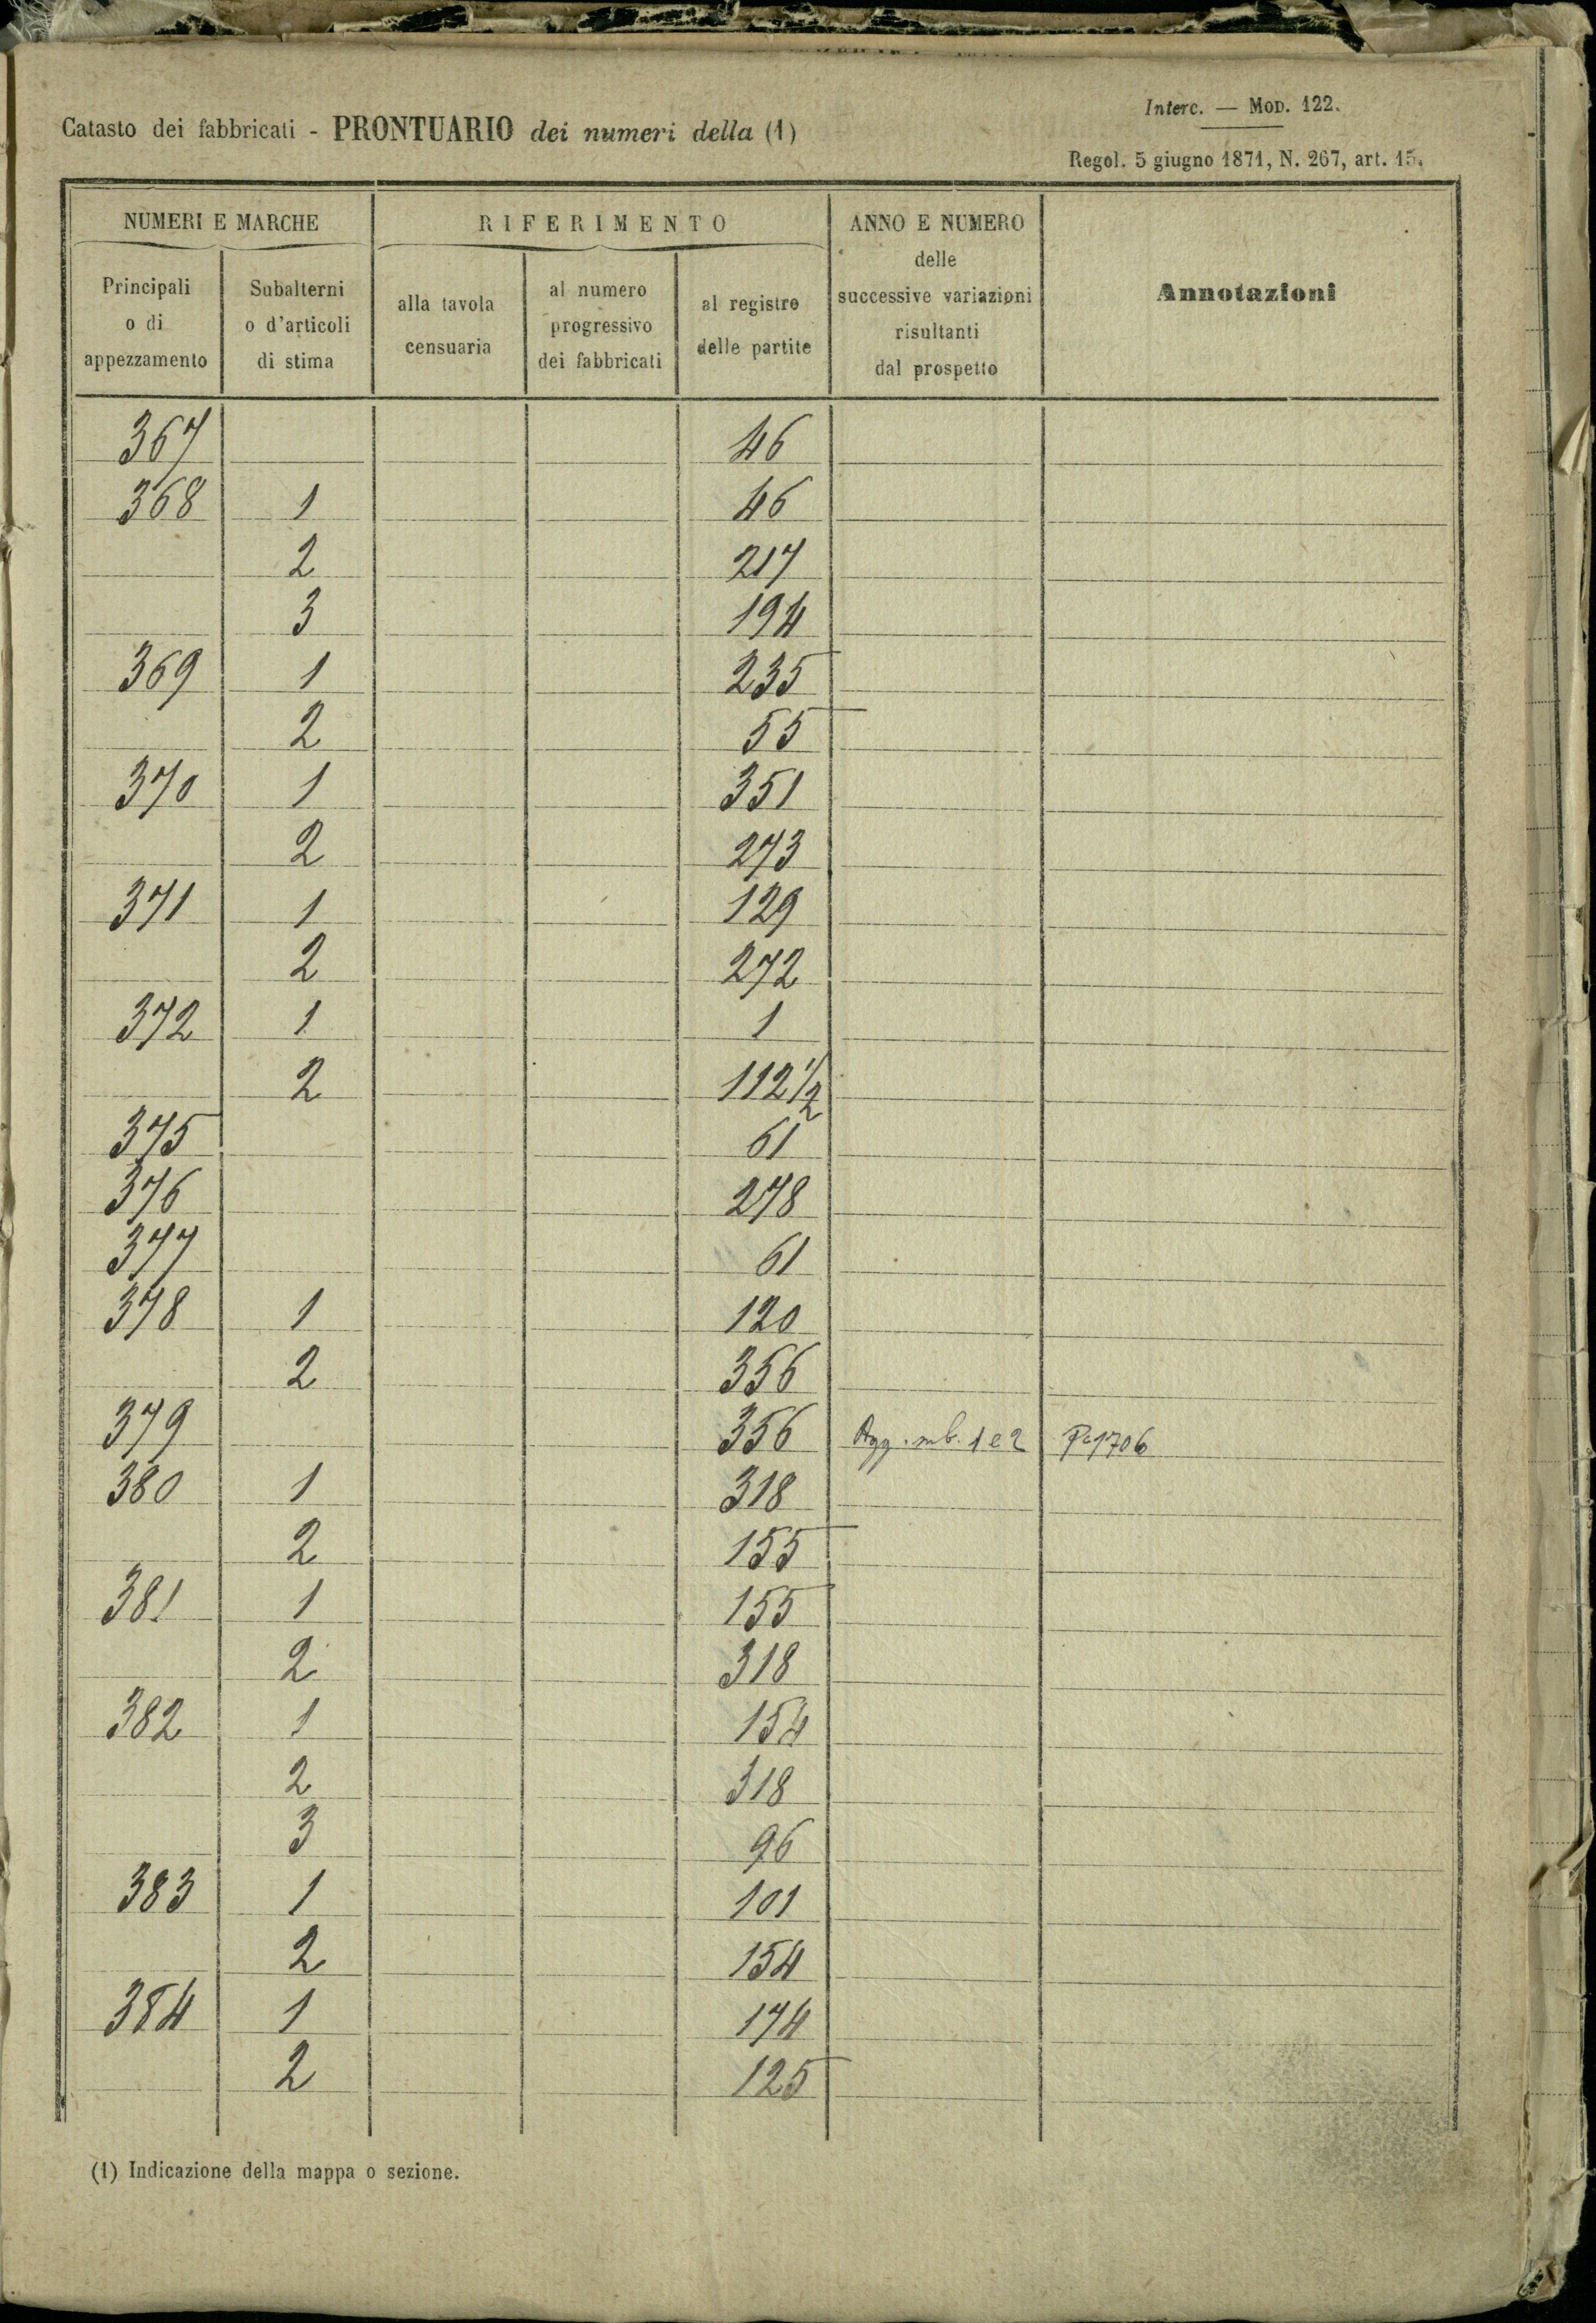 Interc. — Mod. 122.
Catasto dei fabbricati - PRONTUARIO dei numeri della (1)
Regol. 5 giugno 1871, N. 267, art. 15.
NUMERI E MARCHE
RIFERIMENTO
ANNO E NUMERO
delle
successive variazioni
risultanti
dal prospetto
Annotazioni
Principali
o di
appezzamento
Subalterni
o d'articoli
di stima
alla tavola
censuaria
al numero
progressivo
dei fabbricati
al registro
delle partite
367 46
368 1 46
2 217
3 194
369 1 235
2 55
370 1 351
2 273
371 1 129
2 272
372 1 1
2 112 1/2
375 61
376 278
377 61
378 1 120
2 356
379 356 Agg. sub. 1 e 2 Pa 1706
380 1 318
2 155
381 1 155
2 318
382 1 154
2 318
3 96
383 1 101
2 154
384 1 174
2 125
(1) Indicazione della mappa o sezione.